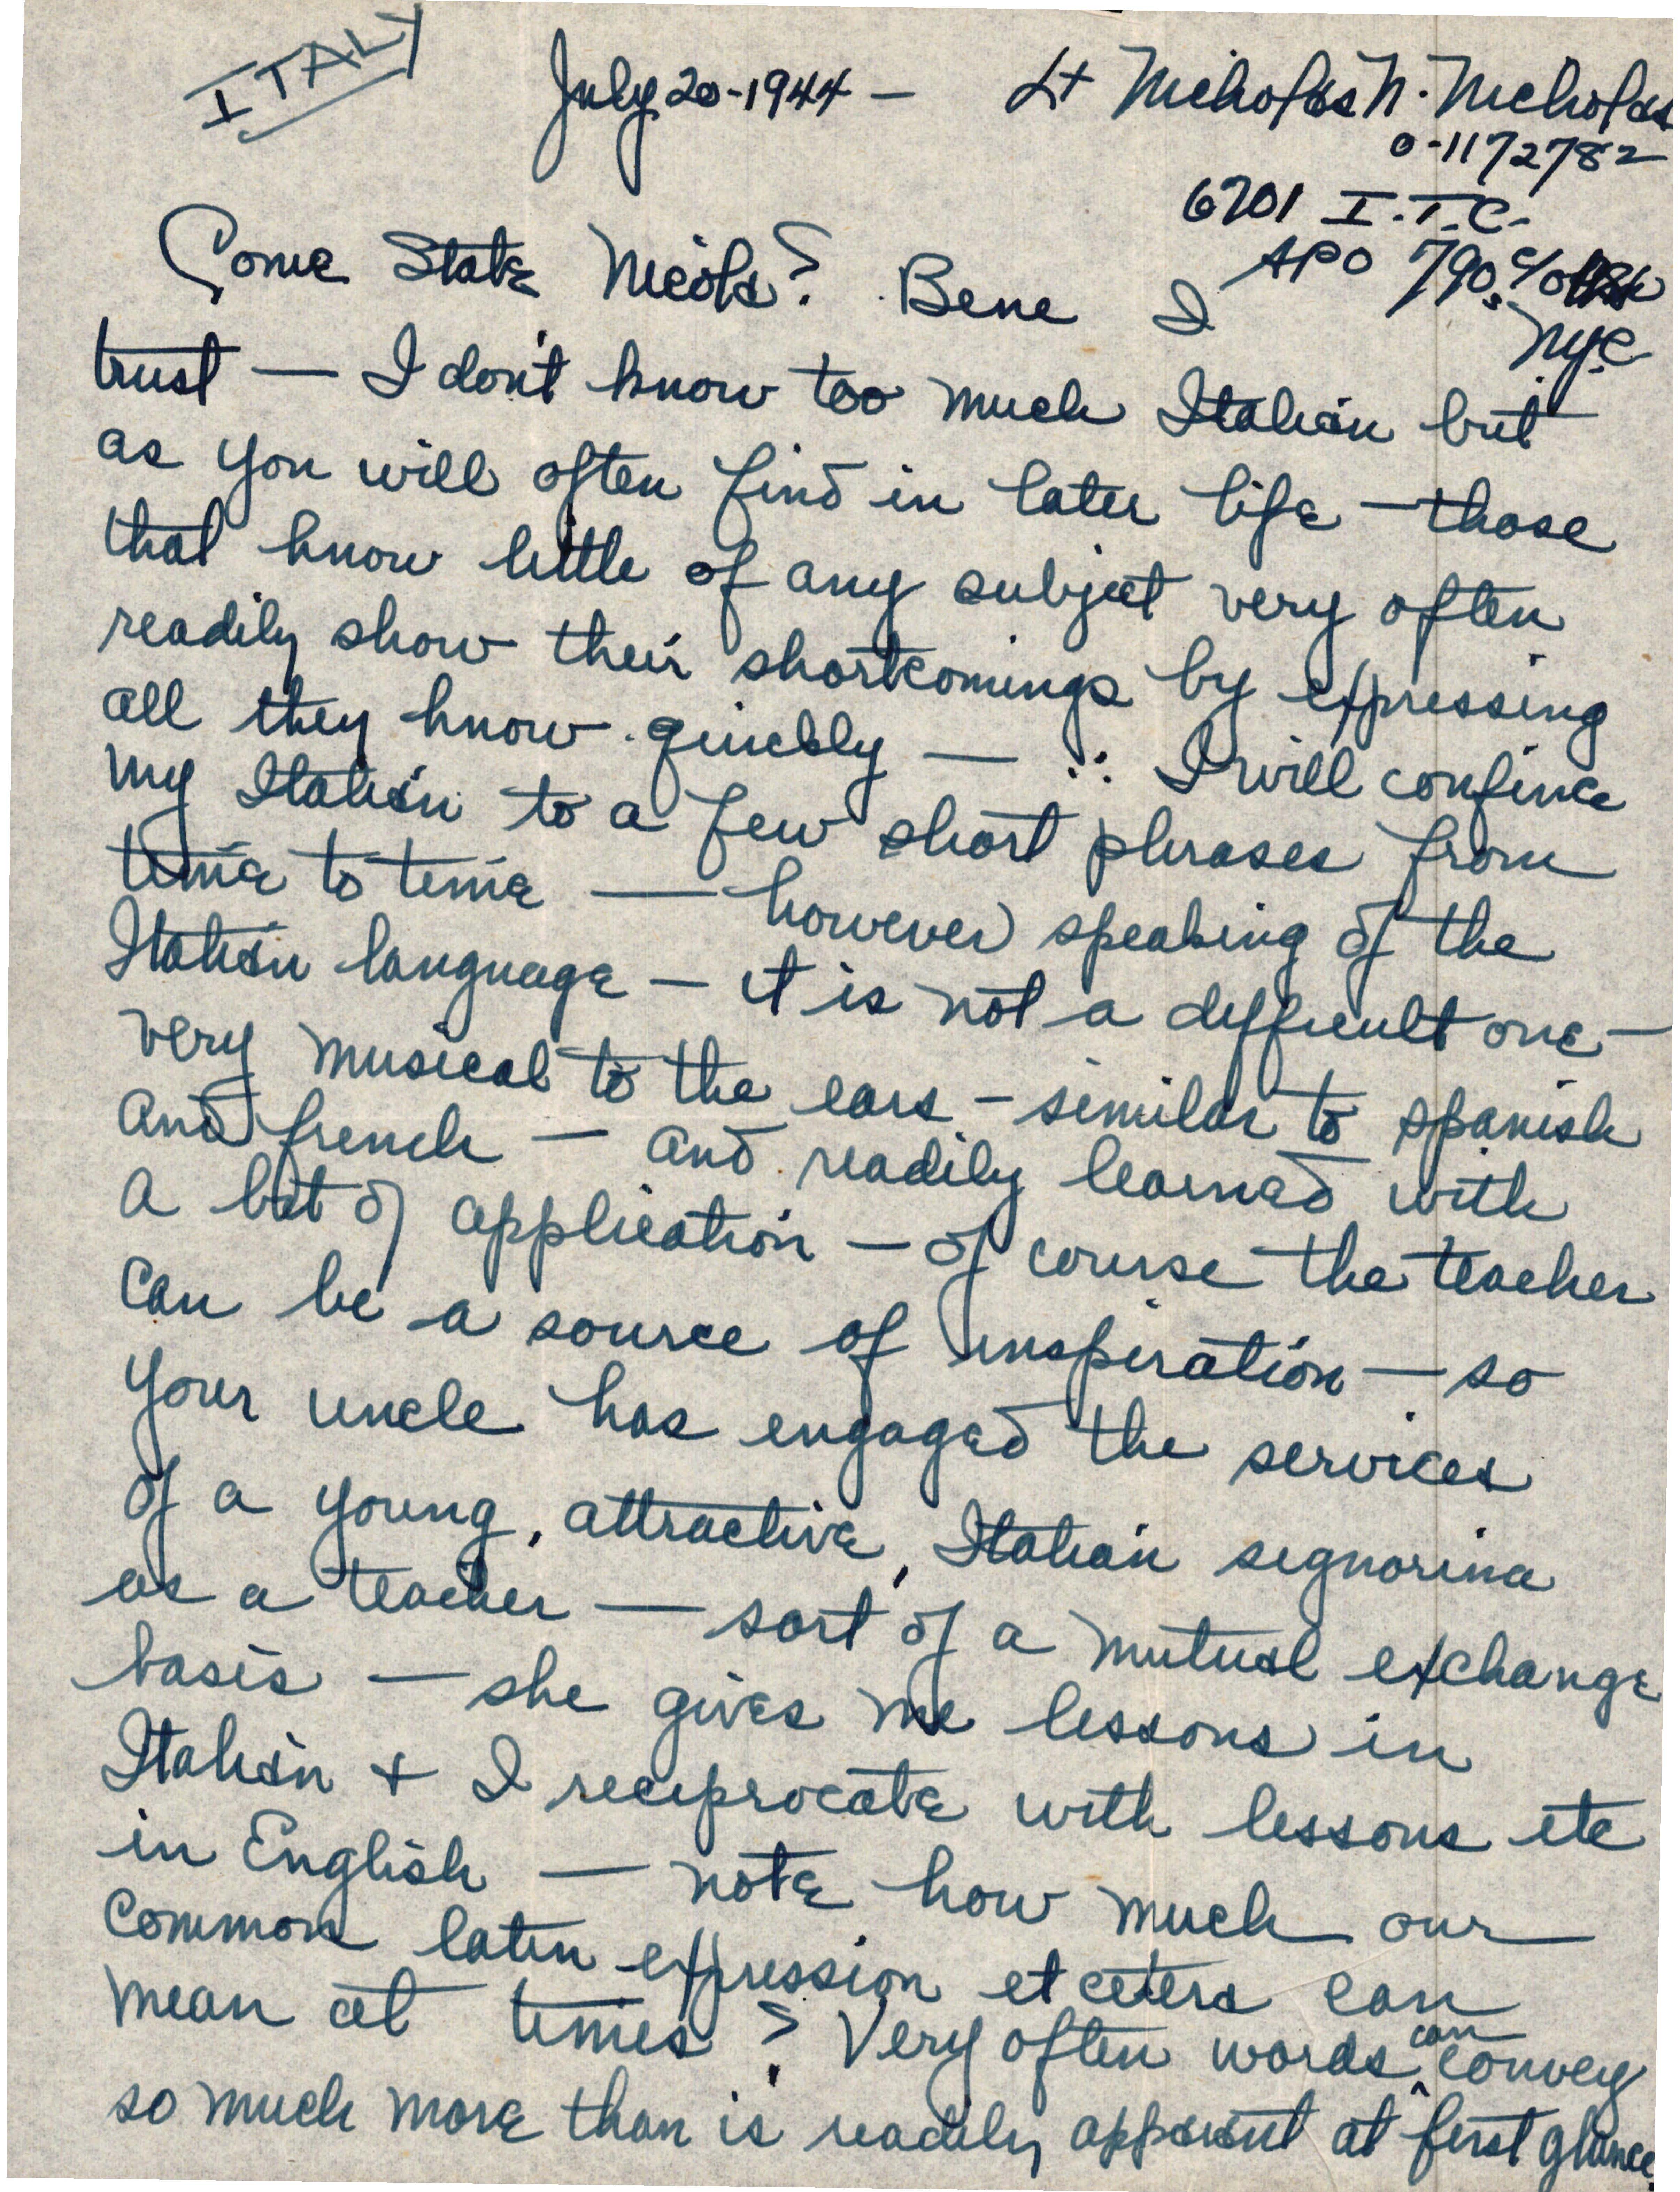 ITALY
July 20-1944 — Lt Nicholas N. Nicholas
0-1172782
6701 I.T.C.
APO 790. c/o
NYC
Come State Nicola? Bene I
trust — I don't know too much Italian but
as you will often find in later life — those
that know little of any subject very often
readily show their shortcomings by expressing
all they know quickly — ∴ I will confine
my Italian to a few short phrases from
time to time — however speaking of the
Italian language — it is not a difficult one —
very musical to the ears - similar to spanish
and french — and readily learned with
a bit of application — of course the teacher
can be a source of inspiration — so
your uncle has engaged the services
of a young, attractive, Italian signorina
as a teacher — sort of a mutual exchange
basis — she gives me lessons in
Italian + I reciprocate with lessons etc
in English — note how much our
common latin expression et cetera can
mean at times? Very often words can convey
so much more than is readily apparent at first glance.